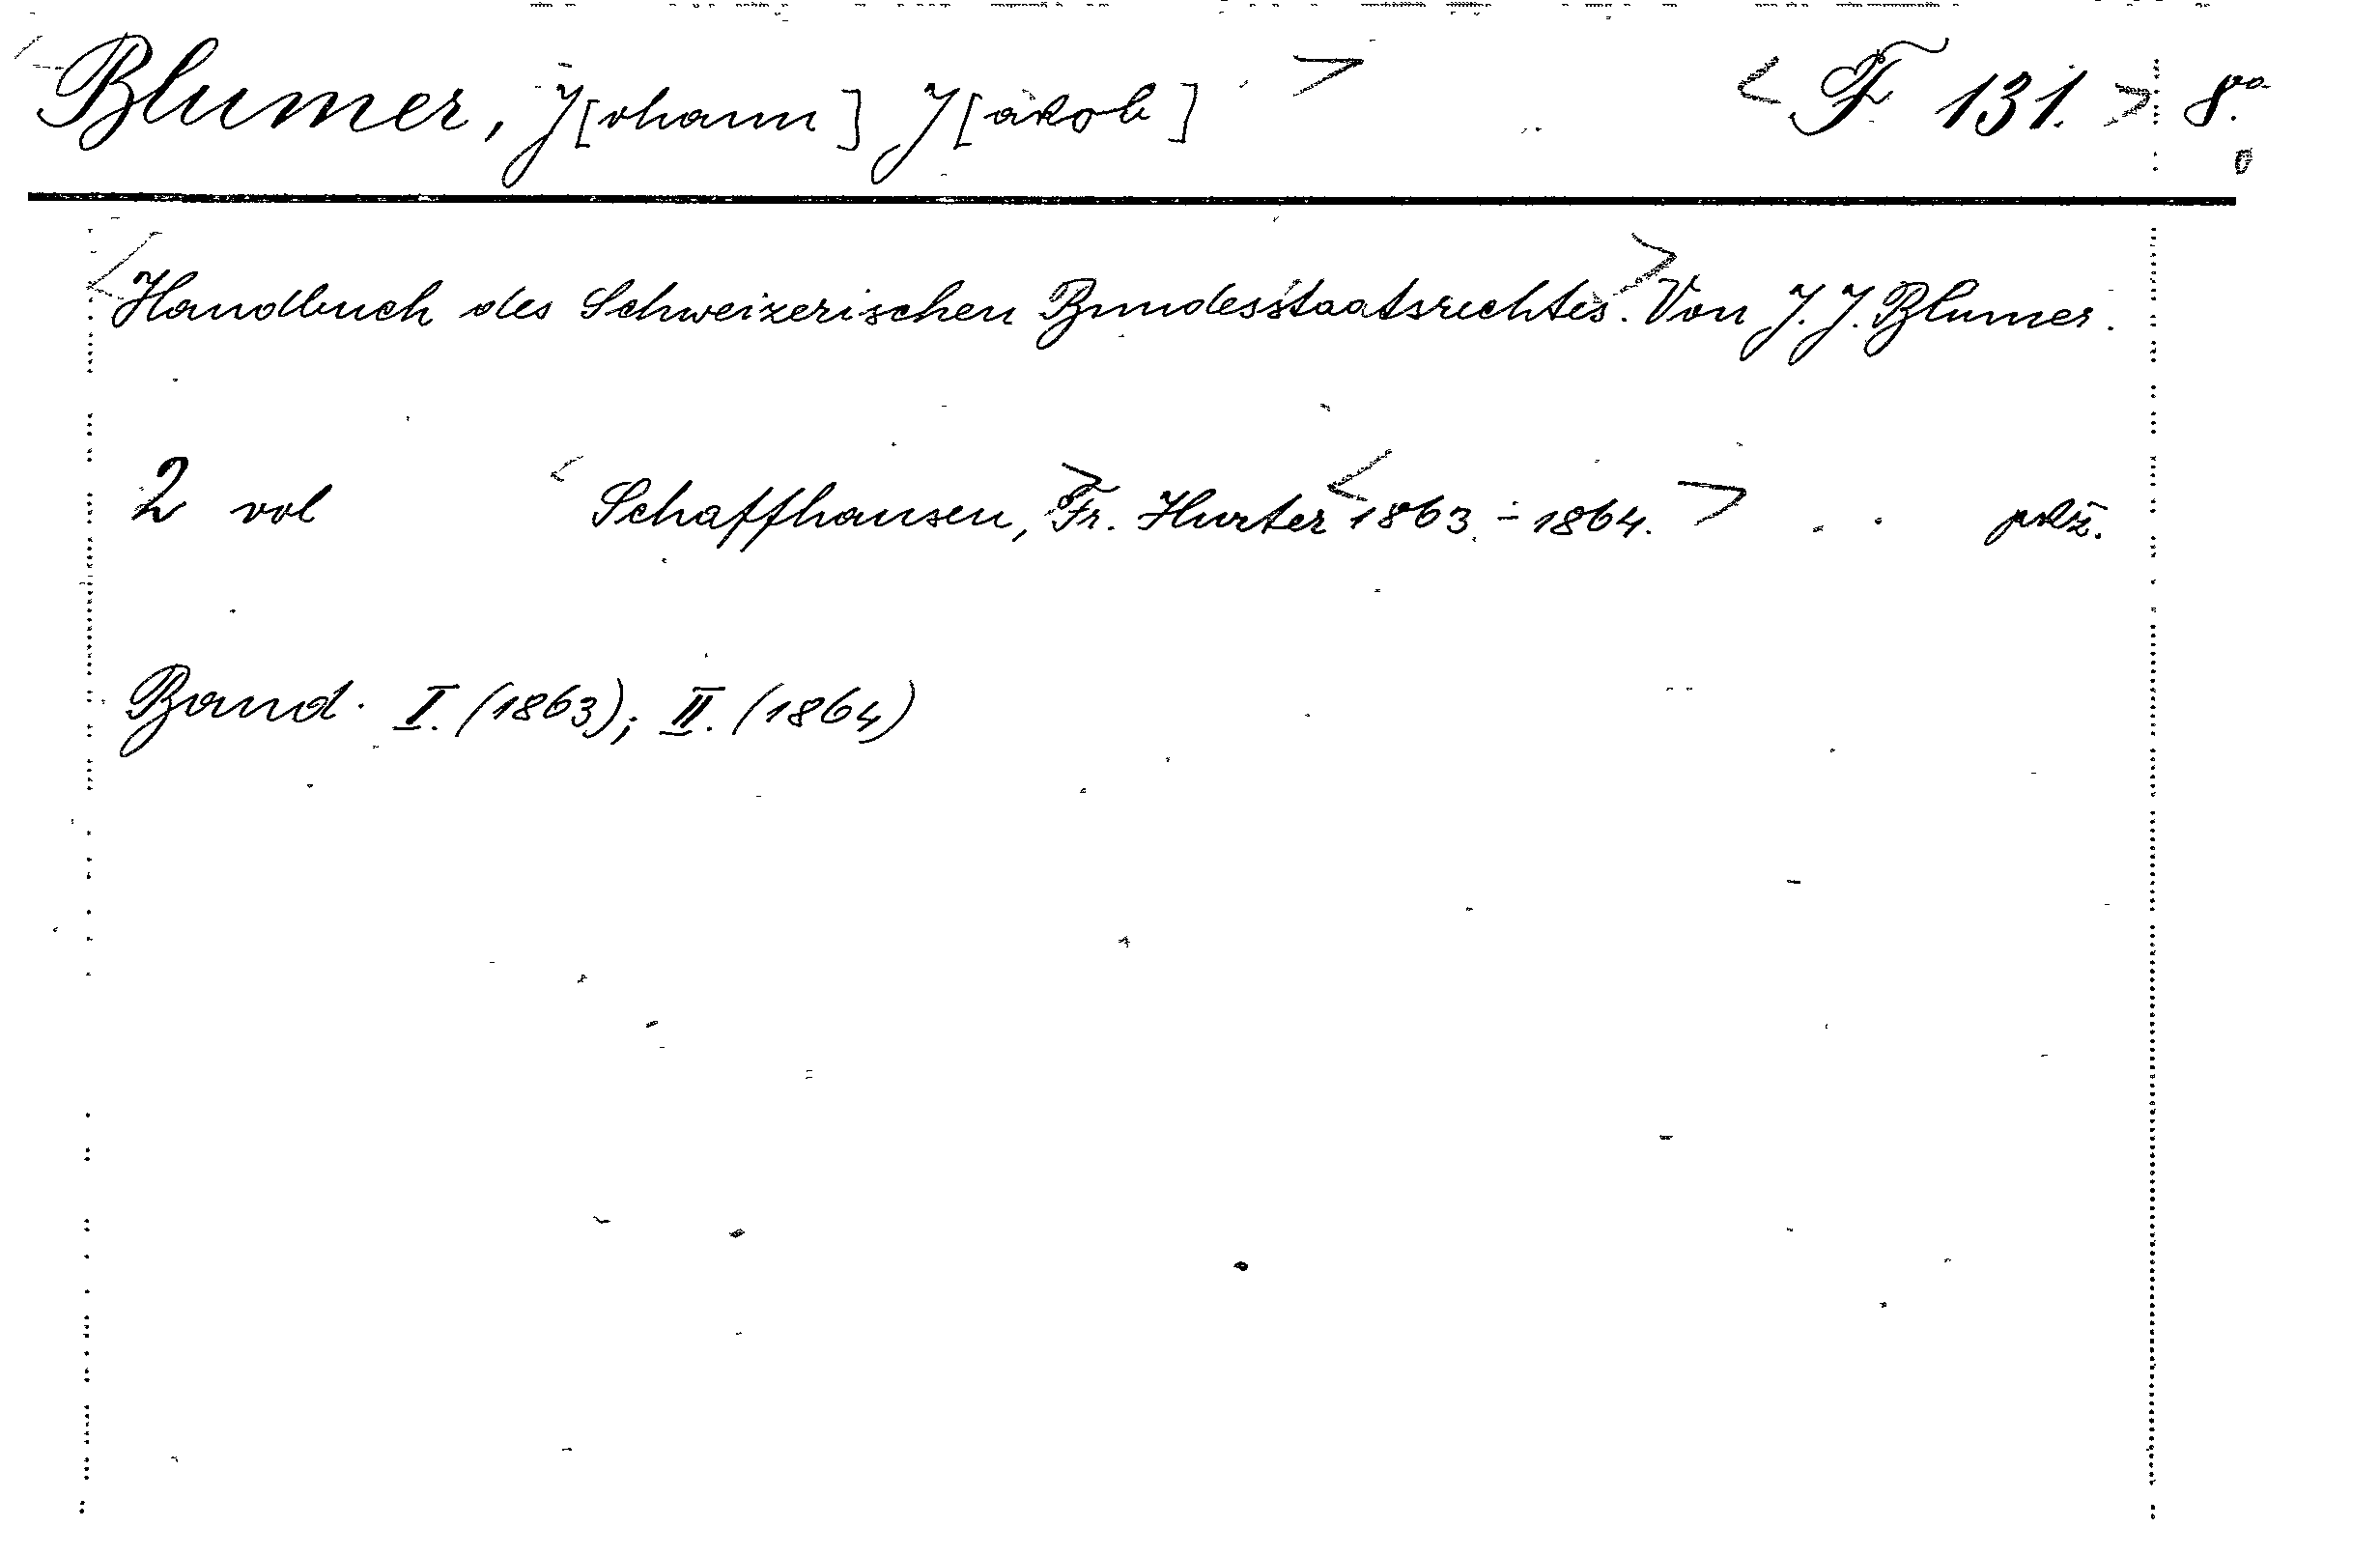 <Blumer, J[ohann] J[akob]> <F 131.> 8vo.
<Handbuch des Schweizerischen Bundesstaatsrechtes.> Von J. J. Blumer.
2 vol <Schaffhausen,> Fr. Hurter <1863.-1864.>
Band. I. (1863); II. (1864)